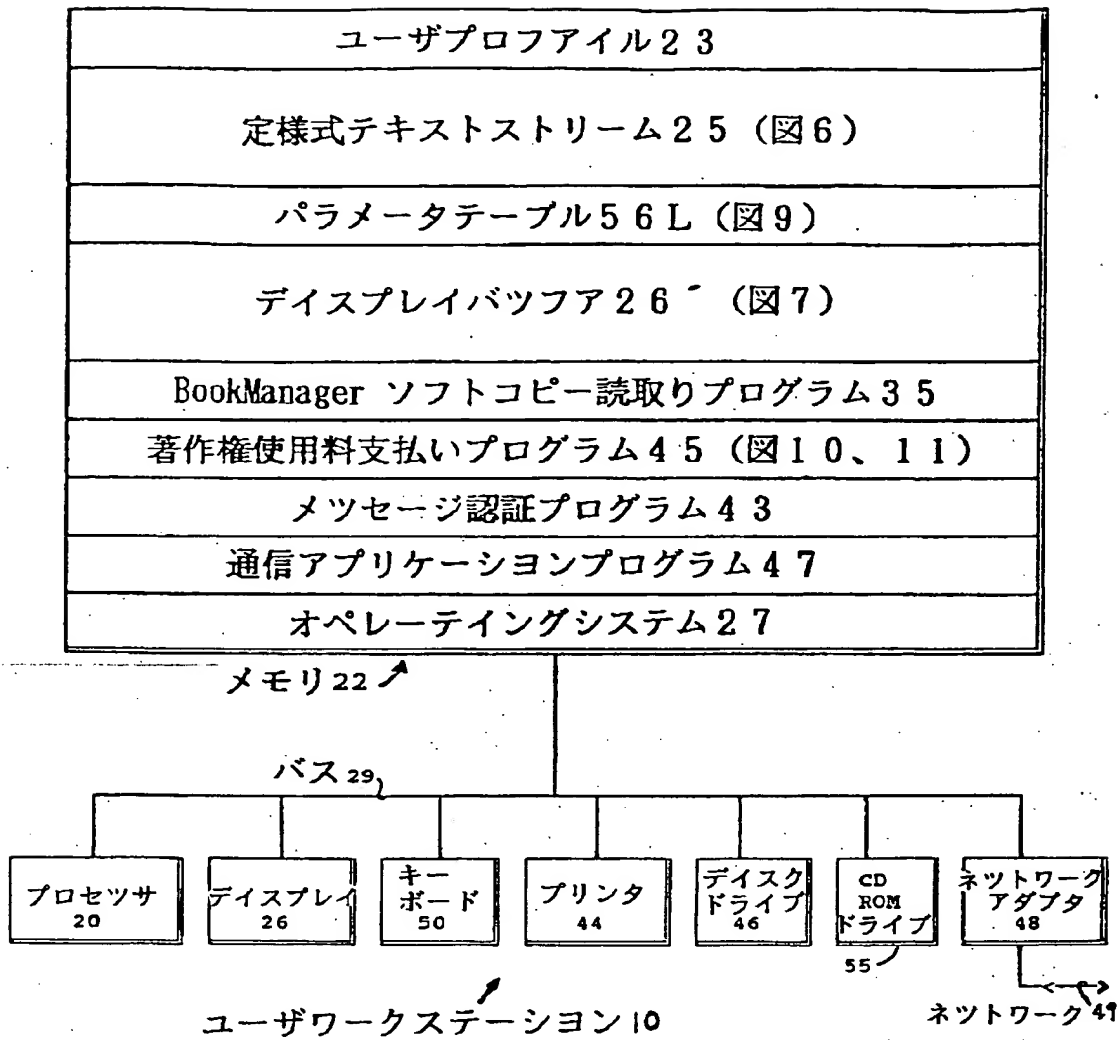 ユーザプロフアイル23
定様式テキストストリーム25(図6)
パラメータテーブル56L(図9)
デイスプレイバツフア26 (図7)
BookManager ソフトコピー読取りプログラム35
著作権使用料支払いプログラム45(図10、11)
メツセージ認証プログラム43
通信アプリケーシヨンプログラム47
オペレーテイングシステム27
メモリ22
バス29
プロセツサ
20
デイスプレイ
26
キー
ボード
50
プリンタ
44
デイスク
ドライブ
46
CD
ROM
ドライブ
55
ネツトワーク
アダプタ
48
ユーザワークステーシヨン10
ネツトワーク49